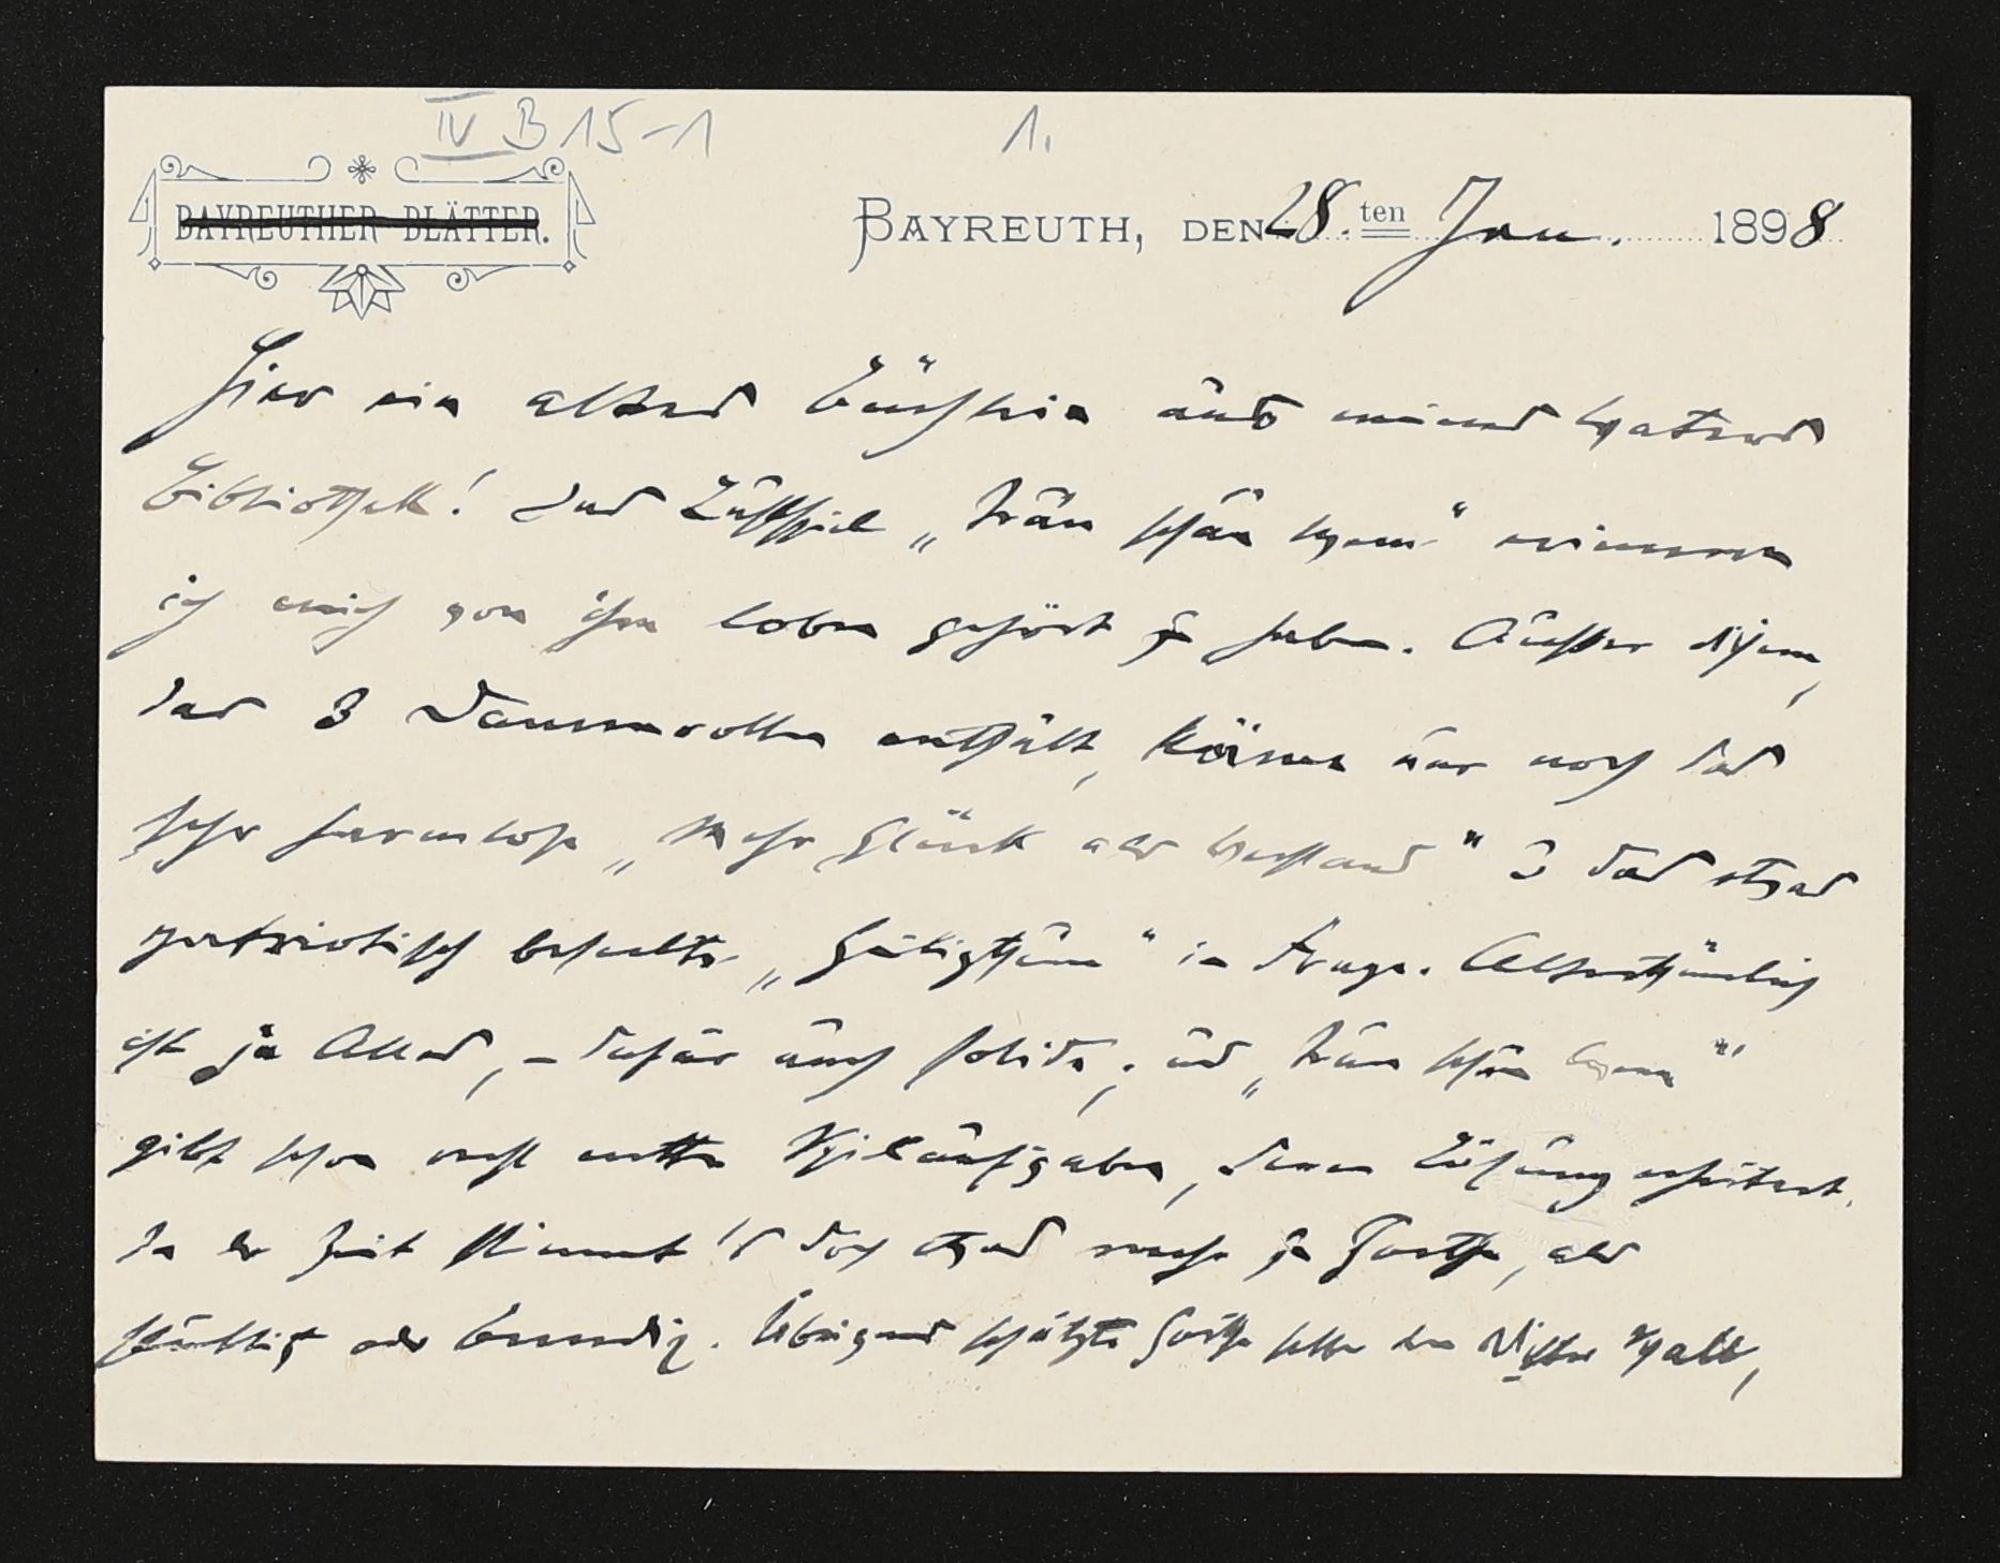 IV B 15-1 1.
BAYREUTHER BLÄTTER.
BAYREUTH, DEN 28. ten Jan. 1898
Hier ein altes Büchlein aus meines Vaters
Bibliothek! Das Lustspiel „Trau schau wem" erinnere
ich mich von ihm loben gehört zu haben. Ausser diesem,
das 3 Damenrollen enthält, käme nur noch das
sehr harmlose „Mehr Glück als Verstand" & das etwas
patriotisch beseelte in Frage. Alterthümlich
ist ja Alles, – dafür auch solide; und „Trau schau wem"
gibt schon recht nette Spielaufgaben, deren Lösung erheitert.
In der Zeit stimmt's doch etwas mehr zu Goethe, als
oder Benedix. Übrigens schätzte Goethe selber den Dichter Wall,